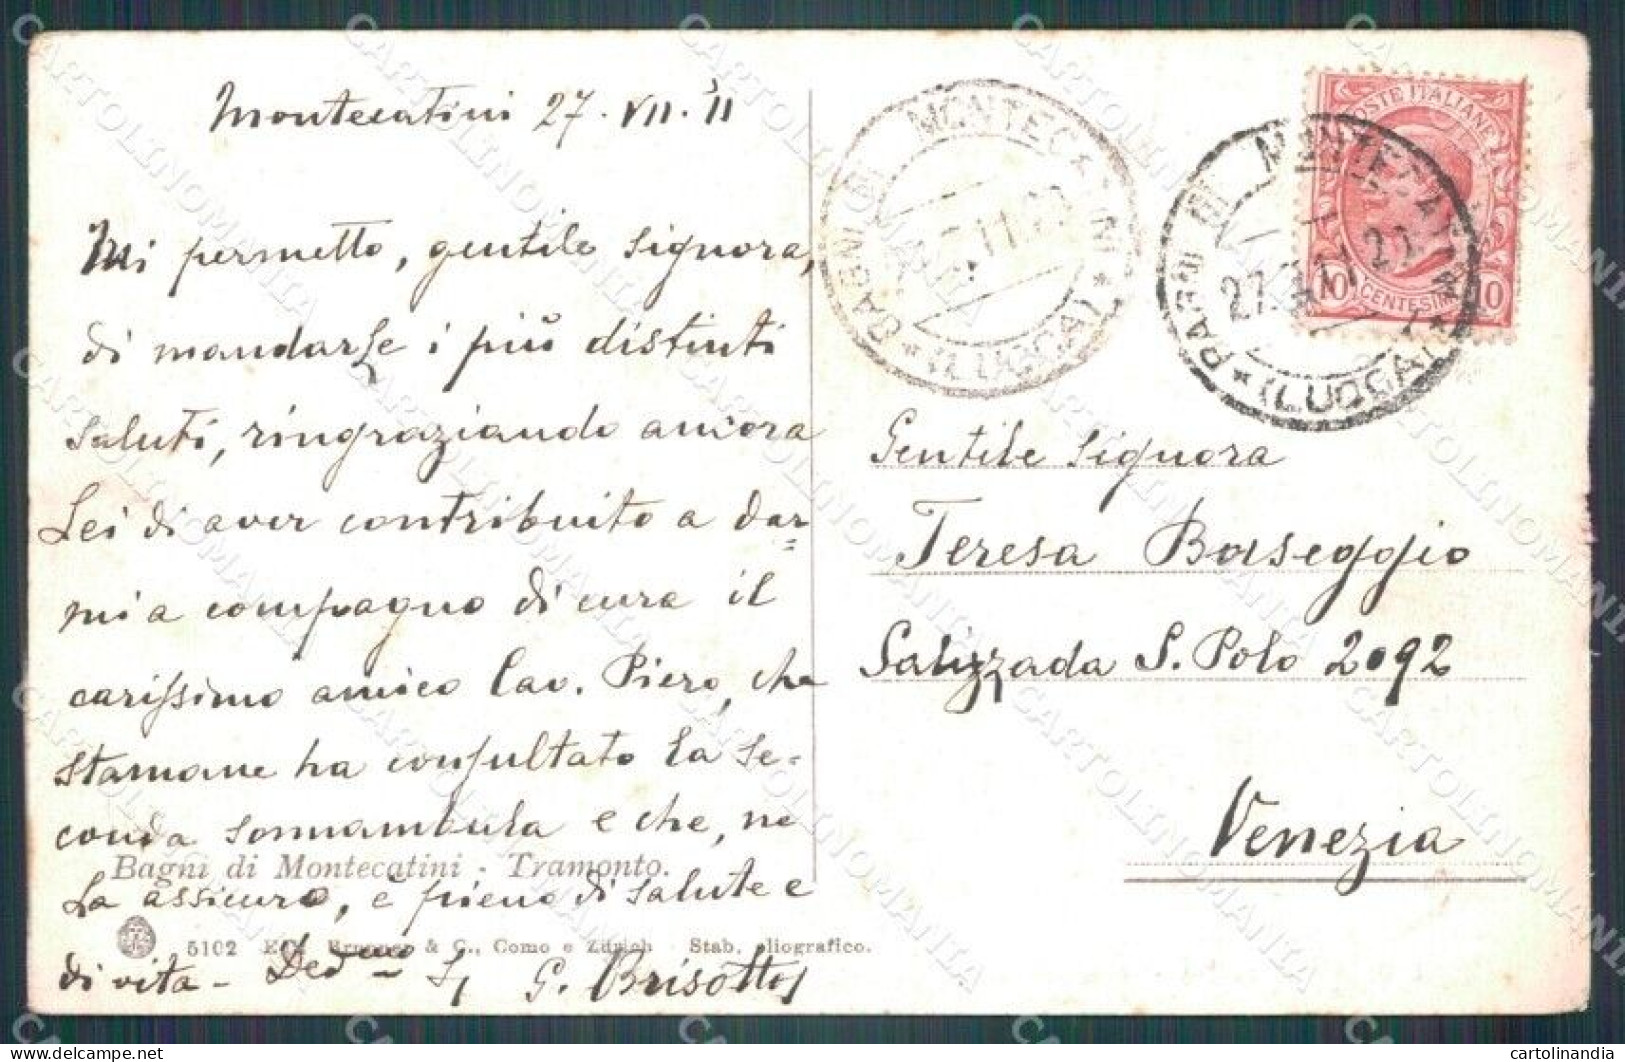 Montecatini 27. VII. 11
Mi permetto, gentile Signora,
di mandarLe i più distinti
saluti, ringraziando ancora
Lei di aver contribuito a dar=
mi a compagno di cura il
carissimo amico Cav. Piero, che
stamane ha consultato la se-
conda sonnambula e che, ne
Bagni di Montecatini - Tramonto.
La assicuro, è pieno di salute e
5102 Ed. Brunner & C., Como e Zürich Stab. eliografico.
di vita - Dedmo G. Brisotto
BAGNI DI MONTECATINI
* (LUCCA) *
POSTE ITALIANE
10 CENTESIMI 10
BAGNI DI MONTECATINI
27. 11. 20
* (LUCCA) *
Gentile Signora
Teresa Barseggio
Salizzada S. Polo 2092
Venezia
CARTOLINOMANIA
cartolinandia